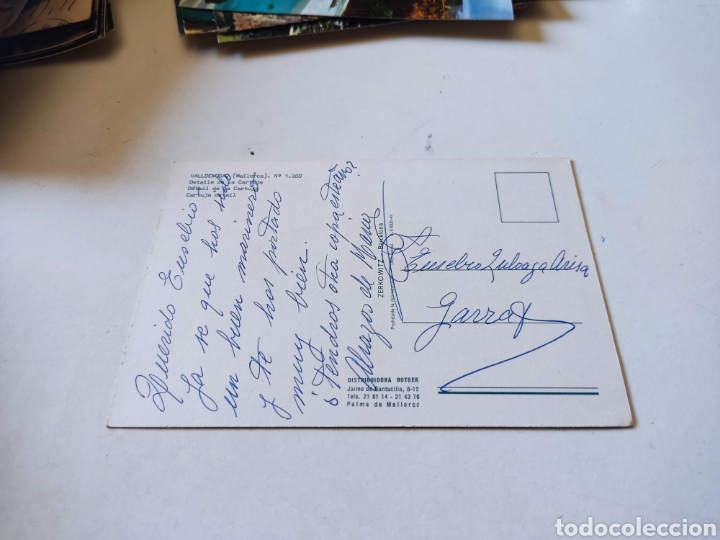 VALLDEMOSA (Mallorca). Nº 1.369
Detalle de la Cartuja
Détail de la Cartuja
Cartuja detail
Querido Eusebio
Ya se que has sido
un buen marinero
y te has portado
muy bien.
¿Tendras otra copa este año?
Abrazos de Mario
ZERKOWITZ - Barcelona
Eusebio Zuloaga Arisa
Garraf
DISTRIBUIDORA ROTGER
Jaime de Santacilia, 8-12
Tels. 21 61 14 - 21 43 76
Palma de Mallorca
todocoleccion